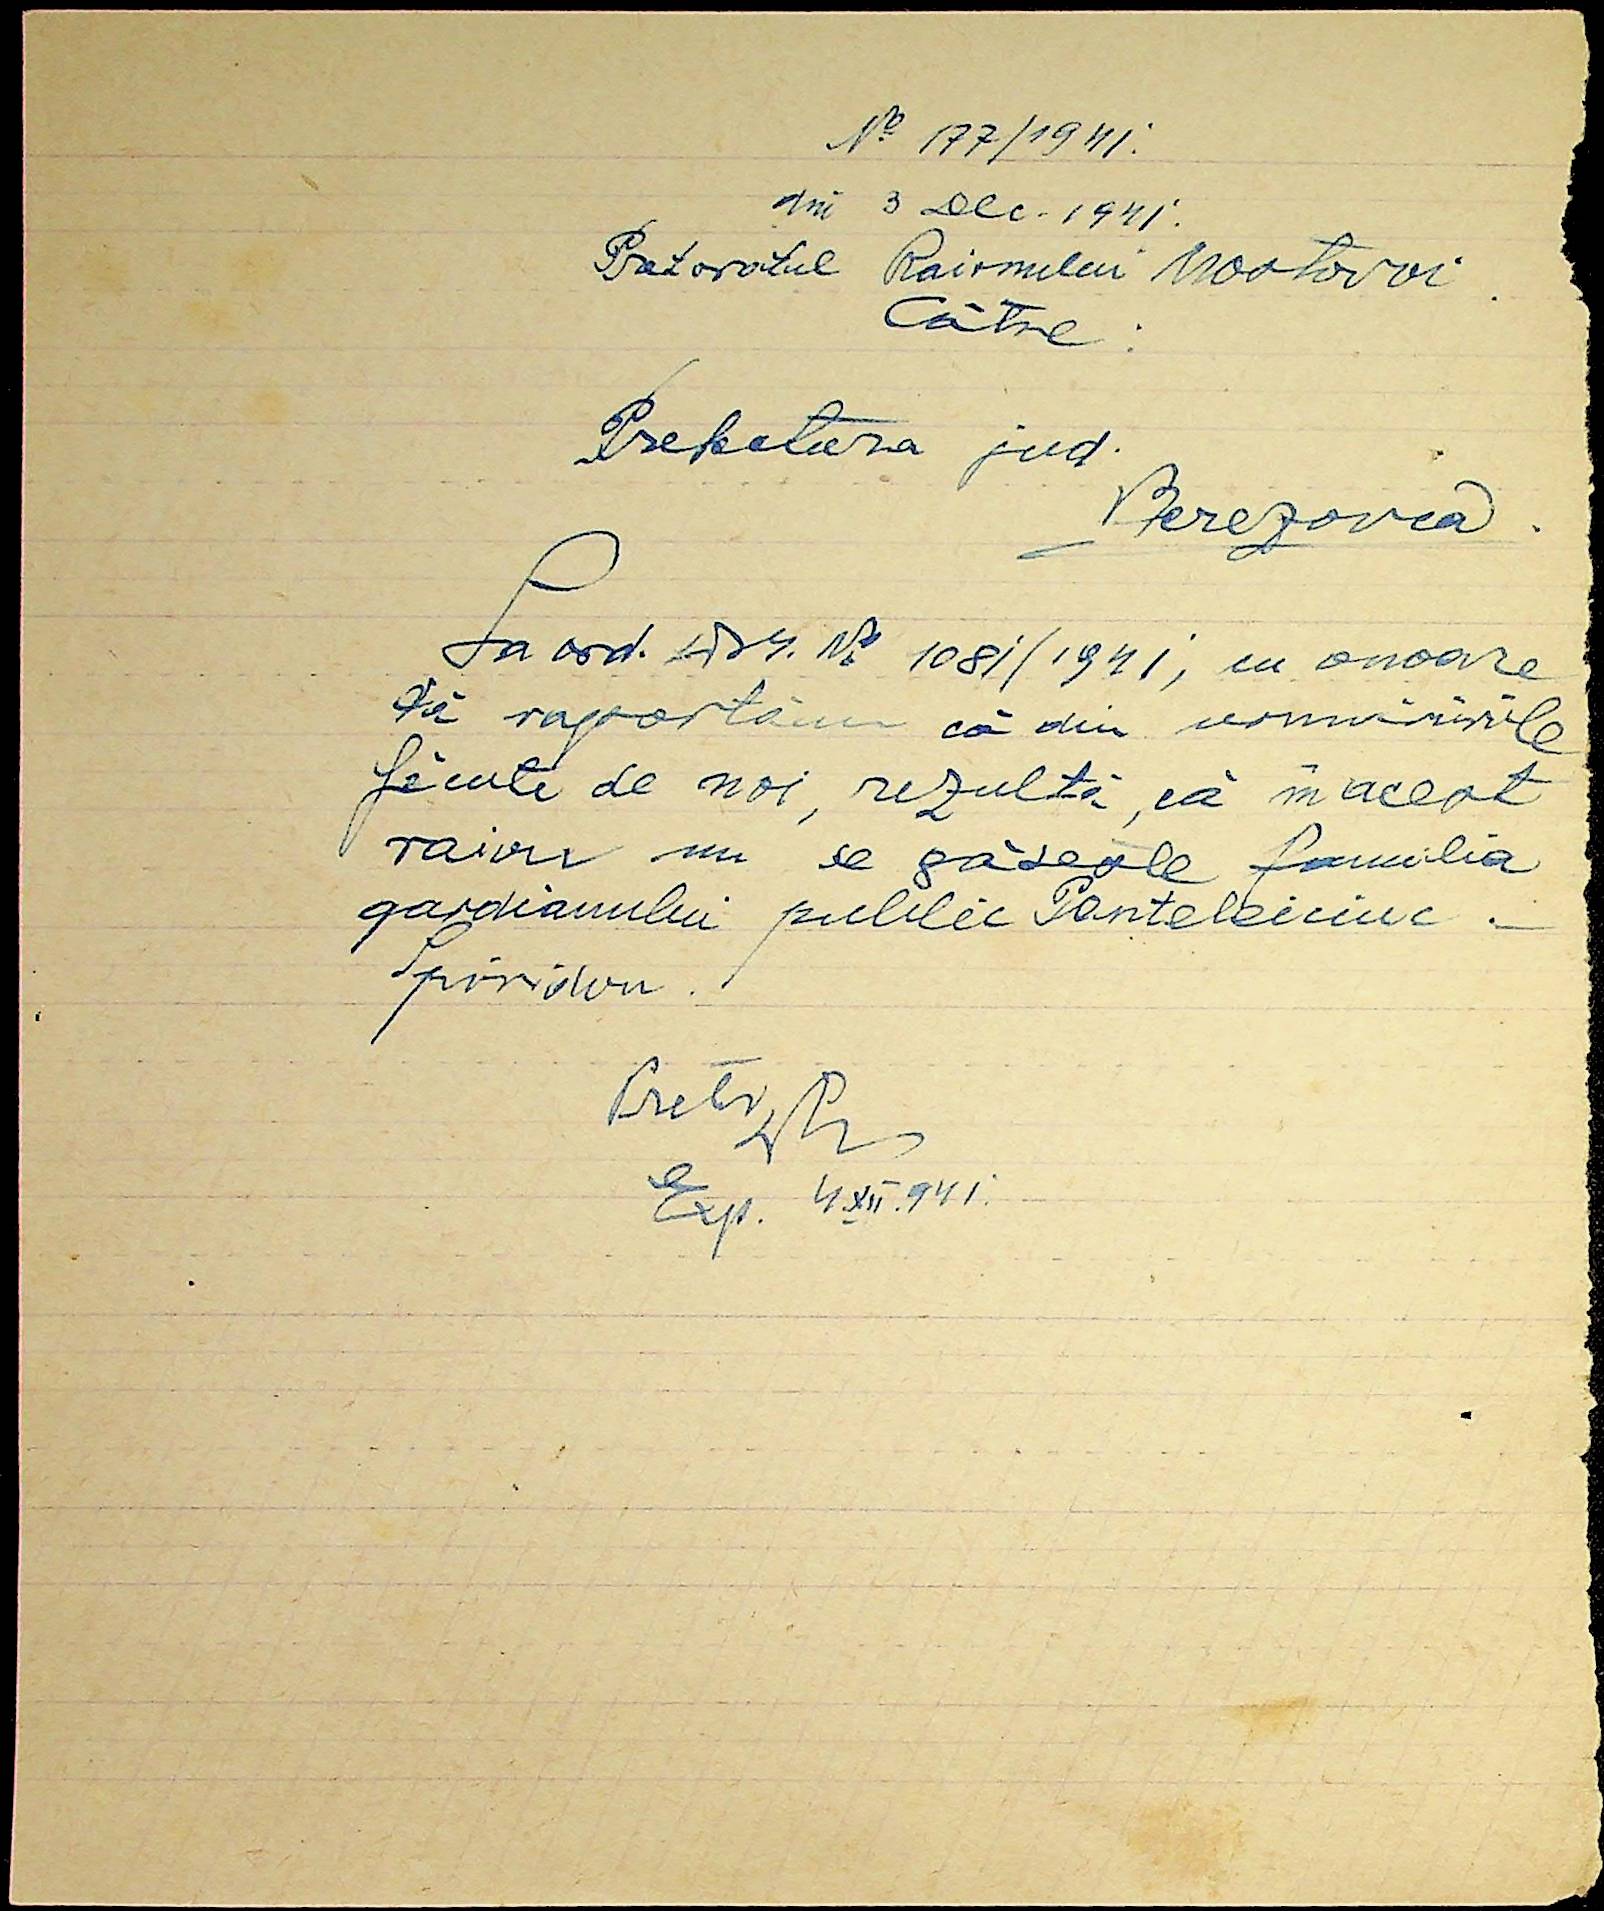 No 177/1941.
din 3 Dec. 1941.
Pretoratul Raionului Mostovoi.
Către:
Prefectura jud.
Berezovca.
La ord. Dv. No 1081/1941, cu onoare
Vă raportăm că din urmăririle
făcute de noi, rezultă, că în acest
raion nu se găsește familia
gardianului public Panteleiciuc -
Spiridon.
Pretor
Exp. 4 XII.941.